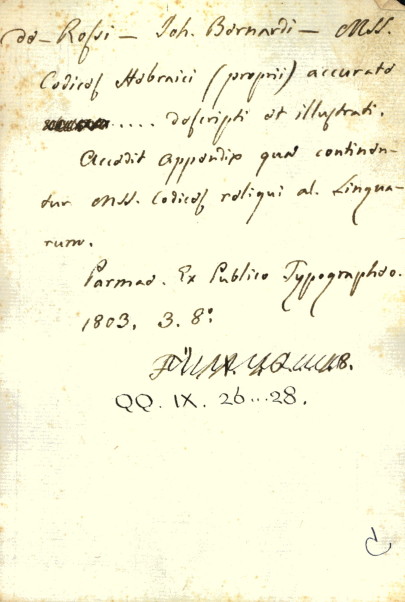 de-Rossi - Joh. Bernardi - MSS.
Codices Hebraici (proprii) accurate
..... descripti et illustrati.
Accedit appendix qua continen-
tur MSS. Codices reliqui al. Lingua-
rum.
Parmae. Ex Publico Typographeo.
1803. 3. 8º
QQ. IX. 26...28.